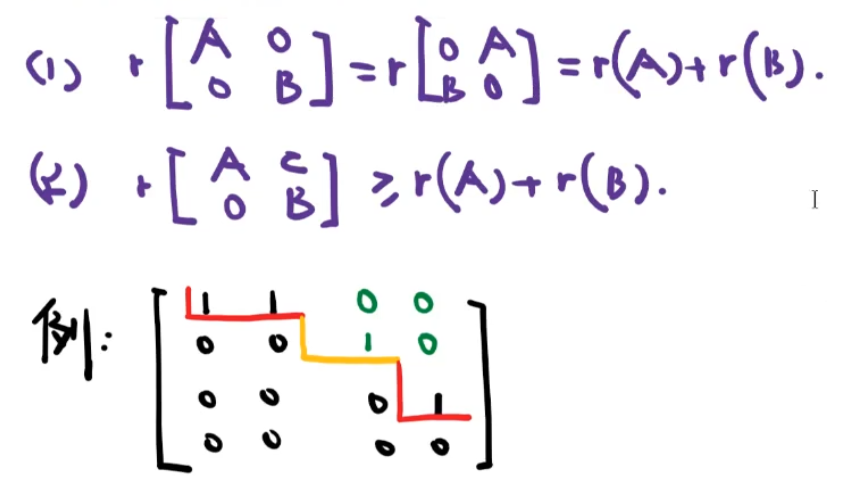 (1) r[A 0; 0 B] = r[0 A; B 0] = r(A)+r(B).
(2) r[A C; 0 B] ≥ r(A)+r(B).
例: [1 1 0 0
0 0 1 0
0 0 0 1
0 0 0 0]